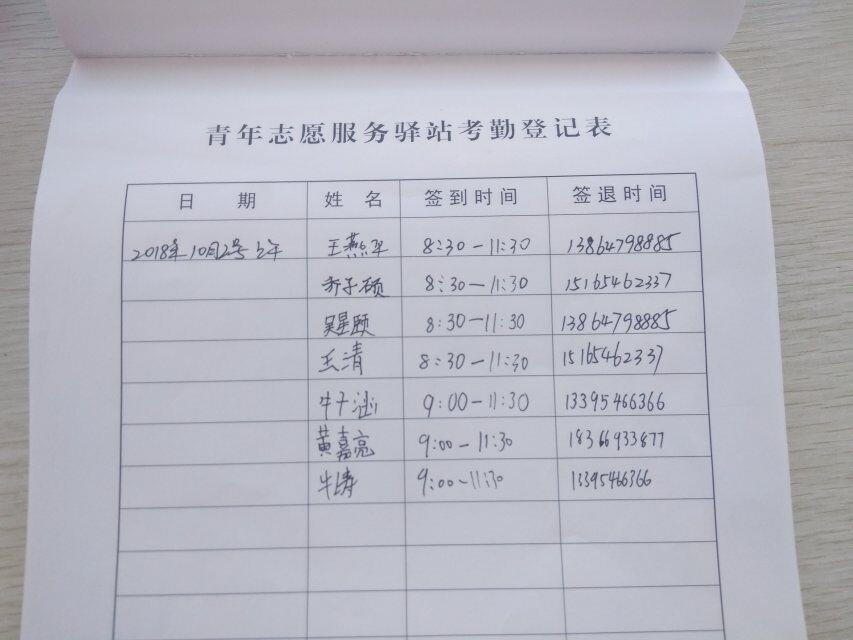 青年志愿服务驿站考勤登记表
日 期 姓 名 签到时间 签退时间
2018年10月2号上午 王燕华 8:30-11:30 13864798885
乔子硕 8:30-11:30 15165462337
吴星颐 8:30-11:30 13864798885
王清 8:30-11:30 15165462337
牛子涵 9:00-11:30 13395466366
黄嘉亮 9:00-11:30 18366933877
牛涛 9:00-11:30 13395466366